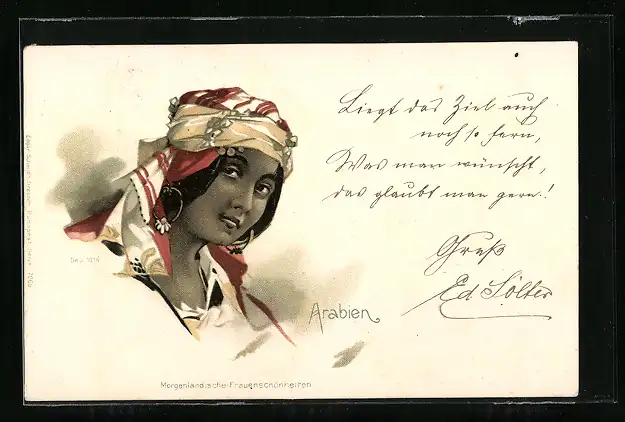 Liegt das Ziel auch
noch so fern,
Was man wünscht,
das glaubt man gern!
Gruß
Ed Sölter
Arabien
Morgenländische Frauenschönheiten